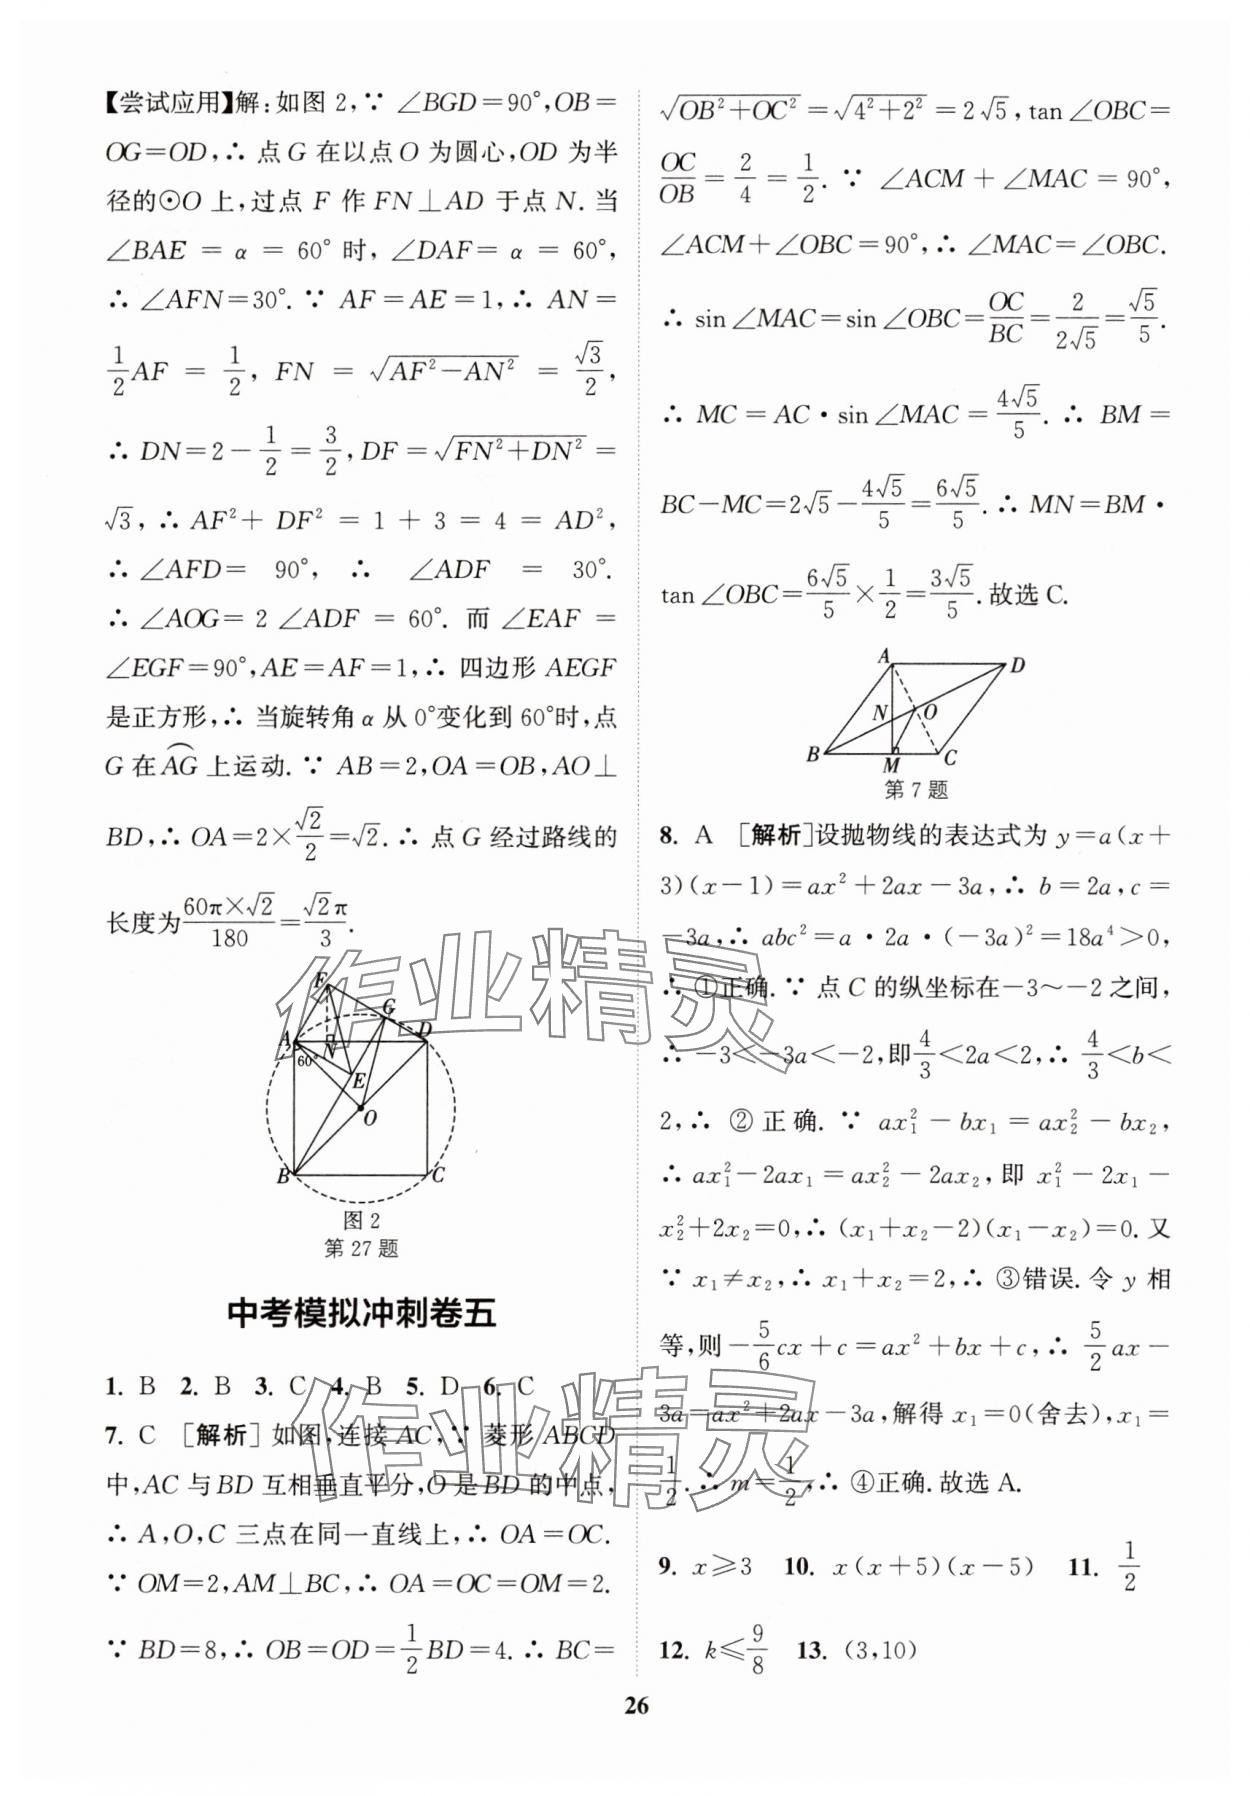 【尝试应用】解:如图 2,∵ ∠BGD=90°,OB=
OG=OD,∴ 点 G 在以点 O 为圆心,OD 为半
径的⊙O 上,过点 F 作 FN⊥AD 于点 N. 当
∠BAE = α = 60° 时, ∠DAF = α = 60°,
∴ ∠AFN=30°. ∵ AF=AE=1,∴ AN=
1/2 AF = 1/2, FN = √(AF²−AN²) = √3/2,
∴ DN=2−1/2=3/2,DF=√(FN²+DN²)=
√3, ∴ AF²+ DF² = 1 + 3 = 4 = AD²,
∴ ∠AFD= 90°, ∴ ∠ADF = 30°.
∴ ∠AOG=2∠ADF = 60°. 而 ∠EAF =
∠EGF=90°,AE=AF=1,∴ 四边形 AEGF
是正方形,∴ 当旋转角 α 从 0°变化到 60°时,点
G 在⌒AG 上运动. ∵ AB=2,OA=OB,AO⊥
BD,∴ OA=2×√2/2=√2.∴ 点 G 经过路线的
长度为(60π×√2)/180=√2π/3.
F
G
A
N
D
60°
E
O
B
C
图 2
第 27 题
中考模拟冲刺卷五
1. B 2. B 3. C 4. B 5. D 6. C
7. C [解析] 如图,连接 AC,∵ 菱形 ABCD
中,AC 与 BD 互相垂直平分,O 是 BD 的中点,
∴ A,O,C 三点在同一直线上,∴ OA=OC.
∵ OM=2,AM⊥BC,∴ OA=OC=OM=2.
∵ BD=8,∴ OB=OD=1/2 BD=4.∴ BC=
√(OB²+OC²)=√(4²+2²)=2√5,tan∠OBC=
OC/OB=2/4=1/2. ∵ ∠ACM+∠MAC=90°,
∠ACM+∠OBC=90°,∴ ∠MAC=∠OBC.
∴ sin∠MAC=sin∠OBC=OC/BC=2/(2√5)=√5/5.
∴ MC=AC·sin∠MAC=4√5/5.∴ BM=
BC−MC=2√5−4√5/5=6√5/5.∴ MN=BM·
tan∠OBC=6√5/5×1/2=3√5/5.故选 C.
A
D
N
O
B
M
C
第 7 题
8. A [解析]设抛物线的表达式为 y=a(x+
3)(x−1)=ax²+2ax−3a,∴ b=2a,c=
−3a,∴ abc²=a·2a·(−3a)²=18a⁴>0,
∴ ①正确.∵ 点 C 的纵坐标在−3~−2 之间,
∴ −3<−3a<−2,即4/3<2a<2,∴ 4/3<b<
2,∴ ②正确. ∵ ax₁²−bx₁=ax₂²−bx₂,
∴ ax₁²−2ax₁=ax₂²−2ax₂,即 x₁²−2x₁−
x₂²+2x₂=0,∴ (x₁+x₂−2)(x₁−x₂)=0. 又
∵ x₁≠x₂,∴ x₁+x₂=2,∴ ③错误.令 y 相
等,则−5/6 cx+c=ax²+bx+c,∴ 5/2 ax−
3a=ax²+2ax−3a,解得 x₁=0(舍去),x₁=
1/2.∴ m=1/2,∴ ④正确.故选 A.
9. x≥3 10. x(x+5)(x−5) 11. 1/2
12. k≤9/8 13. (3,10)
26
作业精灵
作业精灵